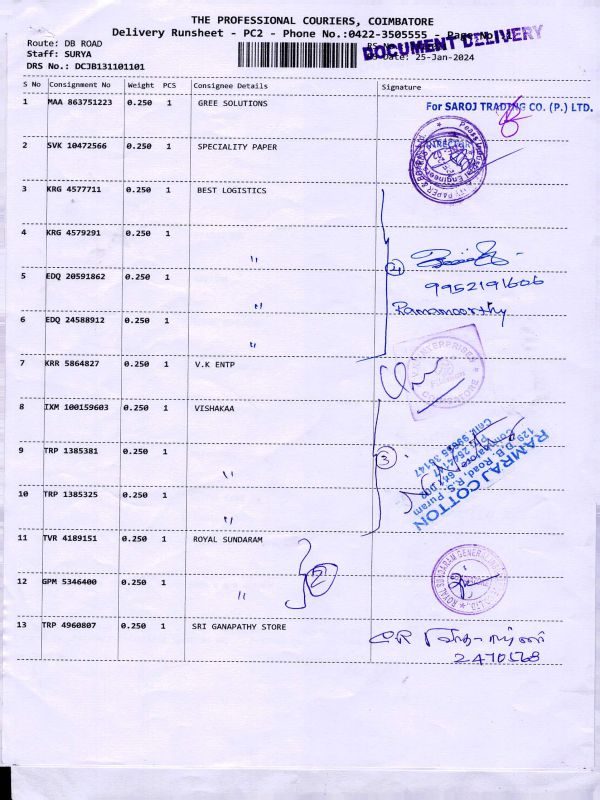 THE PROFESSIONAL COURIERS, COIMBATORE
Delivery Runsheet - PC2 - Phone No.:0422-3505555 - Page No.
DOCUMENT DELIVERY
Route: DB ROAD
Staff: SURYA
Date: 25-Jan-2024
DRS No.: DCJB131101101
S No Consignment No Weight PCS Consignee Details Signature
1 MAA 863751223 0.250 1 GREE SOLUTIONS
For SAROJ TRADING CO. (P.) LTD.
DIRECTOR
2 SVK 10472566 0.250 1 SPECIALITY PAPER
3 KRG 4577711 0.250 1 BEST LOGISTICS
4 KRG 4579291 0.250 1 "
4
5 EDQ 20591862 0.250 1 "
9952191606
Ramamoorthy
6 EDQ 24588912 0.250 1 "
7 KRR 5864827 0.250 1 V.K ENTP
8 IXM 100159603 0.250 1 VISHAKAA
9 TRP 1385381 0.250 1 "
3
RAMRAJ COTTON
129, D.B. Road, R.S. Puram
10 TRP 1385325 0.250 1 "
11 TVR 4189151 0.250 1 ROYAL SUNDARAM
12 GPM 5346400 0.250 1 "
2
13 TRP 4960807 0.250 1 SRI GANAPATHY STORE